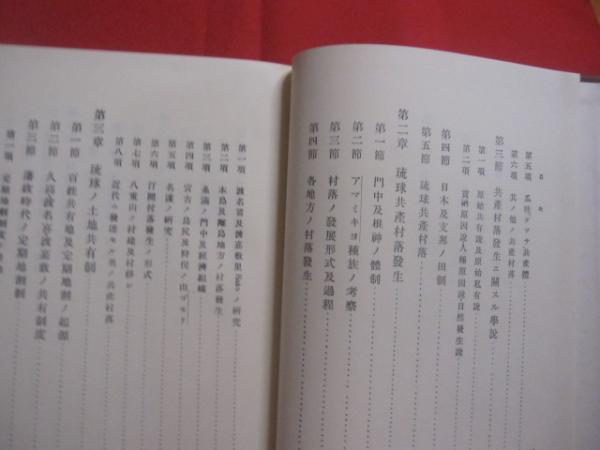 目次
第五項 瓜哇ダサ共產體
第六項 其ノ他ノ共產村落
第三節 共產村落發生ニ關スル學說
第一項 原始共有說及原始私有說
第二項 貢納原因說人種原因說自然發生說
第四節 日本及支那ノ田制
第五節 琉球共產村落
第二章 琉球共產村落發生
第一節 門中及根神ノ體制
第二節 アマミキヨ種族ノ考察
第三節 村落ノ發展形式及過程
第四節 各地方ノ村落發生
第一項 波名喜及謝嘉數里ノ研究
第二項 本島及離島地方ノ村落發生
第三項 糸滿ノ門中及經濟組織
第四項 宮古ノ島民及狩俣ノ由
第五項 名護ノ研究
第六項 汀間村落發生ノ形式
第七項 八重山ノ村織及村移シ
第八項 近代ニ發達セル他ノ共產村落
第三章 琉球ノ土地共有制
第一節 百姓共有地及定期地割ノ起源
第二節 久高波名喜波嘉數ノ共有制度
第三節 藩政時代ノ定期地割制
第一項 定期地割制度